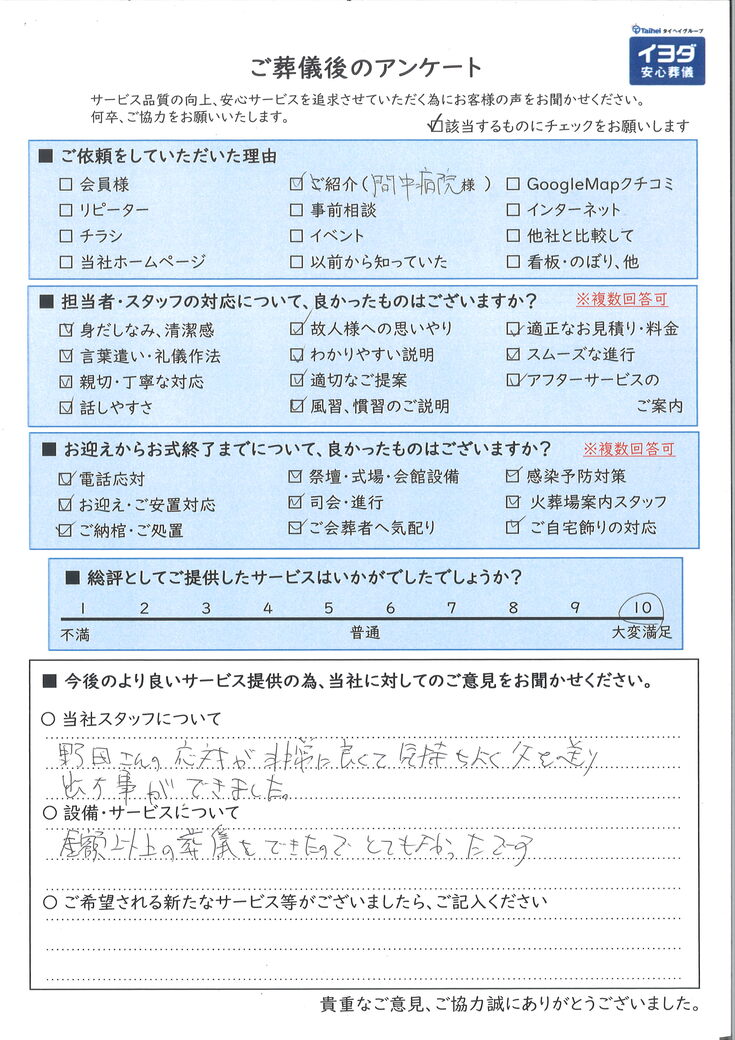 Taihei タイヘイグループ
イヨダ
安心葬儀
ご葬儀後のアンケート
サービス品質の向上、安心サービスを追求させていただく為にお客様の声をお聞かせください。
何卒、ご協力をお願いいたします。
☑該当するものにチェックをお願いします
■ ご依頼をしていただいた理由
□ 会員様 ☑ ご紹介(間中病院様) □ GoogleMapクチコミ
□ リピーター □ 事前相談 □ インターネット
□ チラシ □ イベント □ 他社と比較して
□ 当社ホームページ □ 以前から知っていた □ 看板・のぼり、他
■ 担当者・スタッフの対応について、良かったものはございますか? ※複数回答可
☑ 身だしなみ、清潔感 ☑ 故人様への思いやり ☑ 適正なお見積り・料金
☑ 言葉遣い・礼儀作法 ☑ わかりやすい説明 ☑ スムーズな進行
☑ 親切・丁寧な対応 ☑ 適切なご提案 ☑ アフターサービスの
☑ 話しやすさ ☑ 風習、慣習のご説明 ご案内
■ お迎えからお式終了までについて、良かったものはございますか? ※複数回答可
☑ 電話応対 ☑ 祭壇・式場・会館設備 ☑ 感染予防対策
☑ お迎え・ご安置対応 ☑ 司会・進行 ☑ 火葬場案内スタッフ
☑ ご納棺・ご処置 ☑ ご会葬者へ気配り ☑ ご自宅飾りの対応
■ 総評としてご提供したサービスはいかがでしたでしょうか?
1 2 3 4 5 6 7 8 9 10
不満 普通 大変満足
■ 今後のより良いサービス提供の為、当社に対してのご意見をお聞かせください。
○ 当社スタッフについて
野田さんの応対が非常に良くて気持ちよく父を送り
出す事ができました。
○ 設備・サービスについて
金額以上の葬儀をできたのでとてもよかったです
○ ご希望される新たなサービス等がございましたら、ご記入ください
貴重なご意見、ご協力誠にありがとうございました。